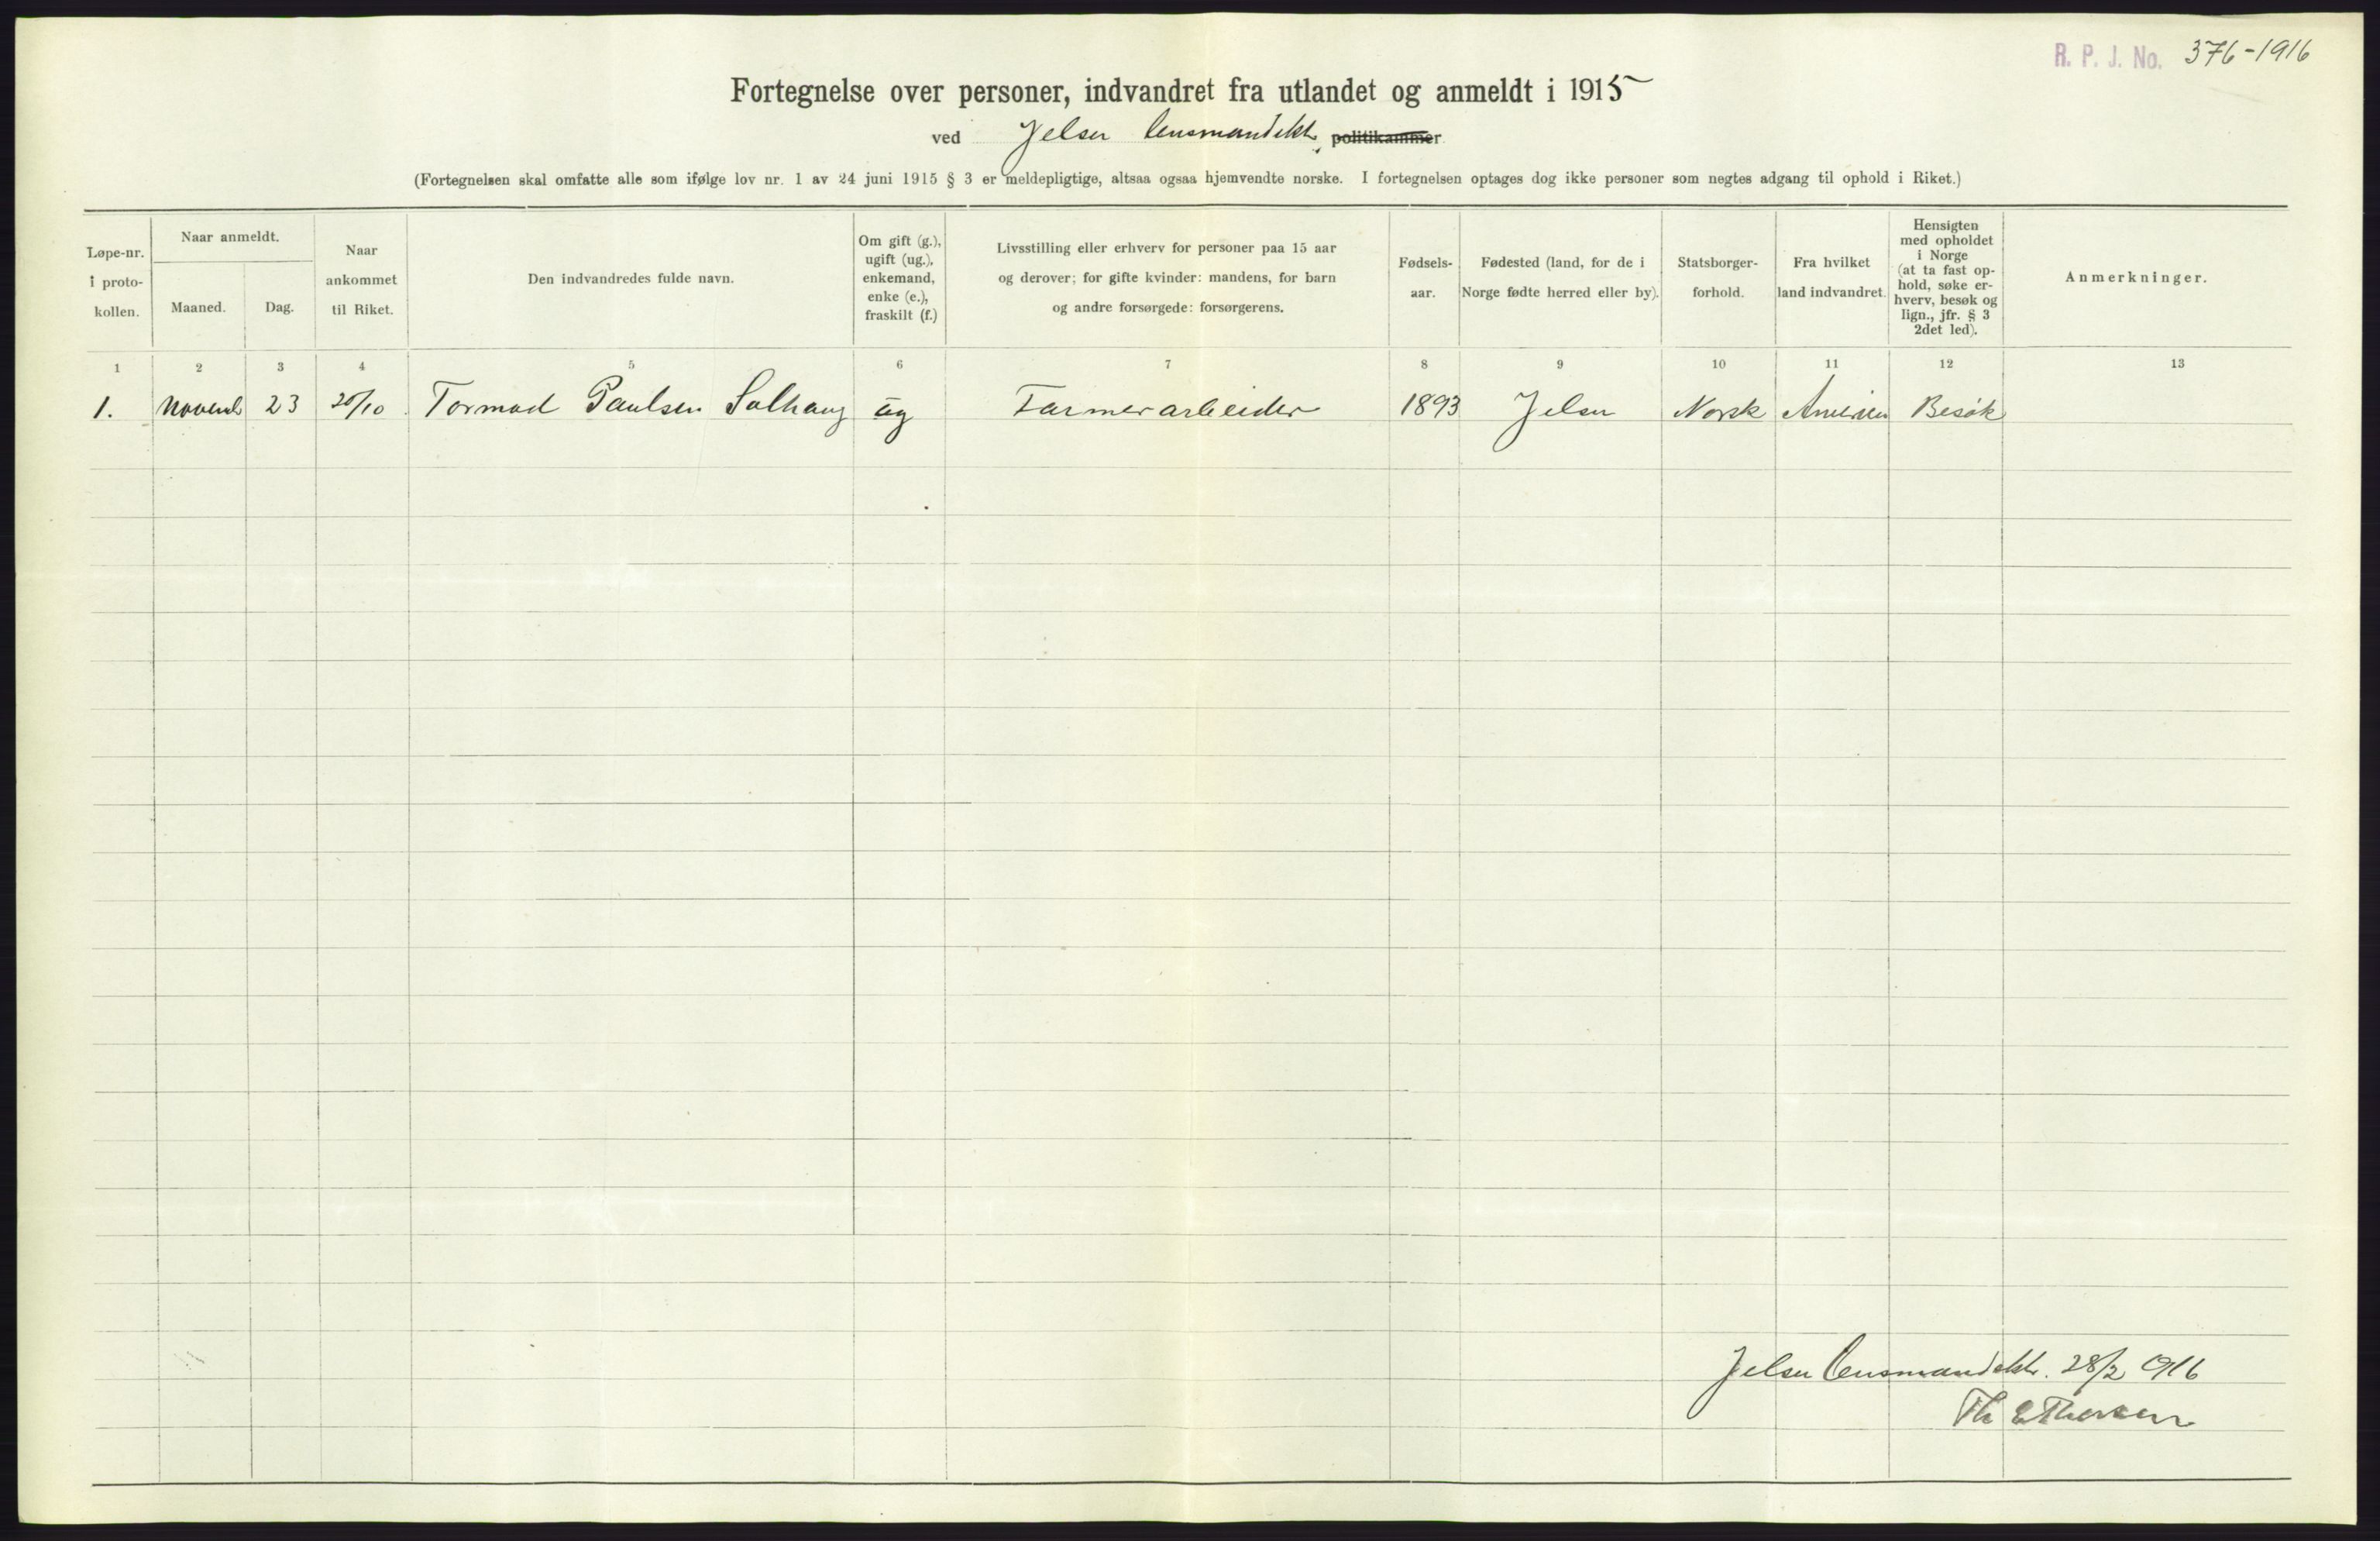 R. P. J. No. 376-1916
Fortegnelse over personer, indvandret fra utlandet og anmeldt i 1915
ved Jelser lensmandsd. politikammer
(Fortegnelsen skal omfatte alle som ifølge lov nr. 1 av 24 juni 1915 § 3 er meldepligtige, altsaa ogsaa hjemvendte norske. I fortegnelsen optages dog ikke personer som negtes adgang til ophold i Riket.)
Løpe-nr.
i proto-
kollen.
Naar anmeldt.
Maaned.
Dag.
Naar
ankommet
til Riket.
Den indvandredes fulde navn.
Om gift (g.),
ugift (ug.),
enkemand,
enke (e.),
fraskilt (f.)
Livsstilling eller erhverv for personer paa 15 aar
og derover; for gifte kvinder: mandens, for barn
og andre forsørgede: forsørgerens.
Fødsels-
aar.
Fødested (land, for de i
Norge fødte herred eller by).
Statsborger-
forhold.
Fra hvilket
land indvandret.
Hensigten
med opholdet
i Norge
(at ta fast op-
hold, søke er-
hverv, besøk og
lign., jfr. § 3
2det led).
Anmerkninger.
1 2 3 4 5 6 7 8 9 10 11 12 13
1. Novemb 23 20/10 Tormod Paulsen Solhaug ug Farmerarbeider 1893 Jelser Norsk Amerika Besøk
Jelser lensmandsd. 28/2 1916
Th E Thorsen